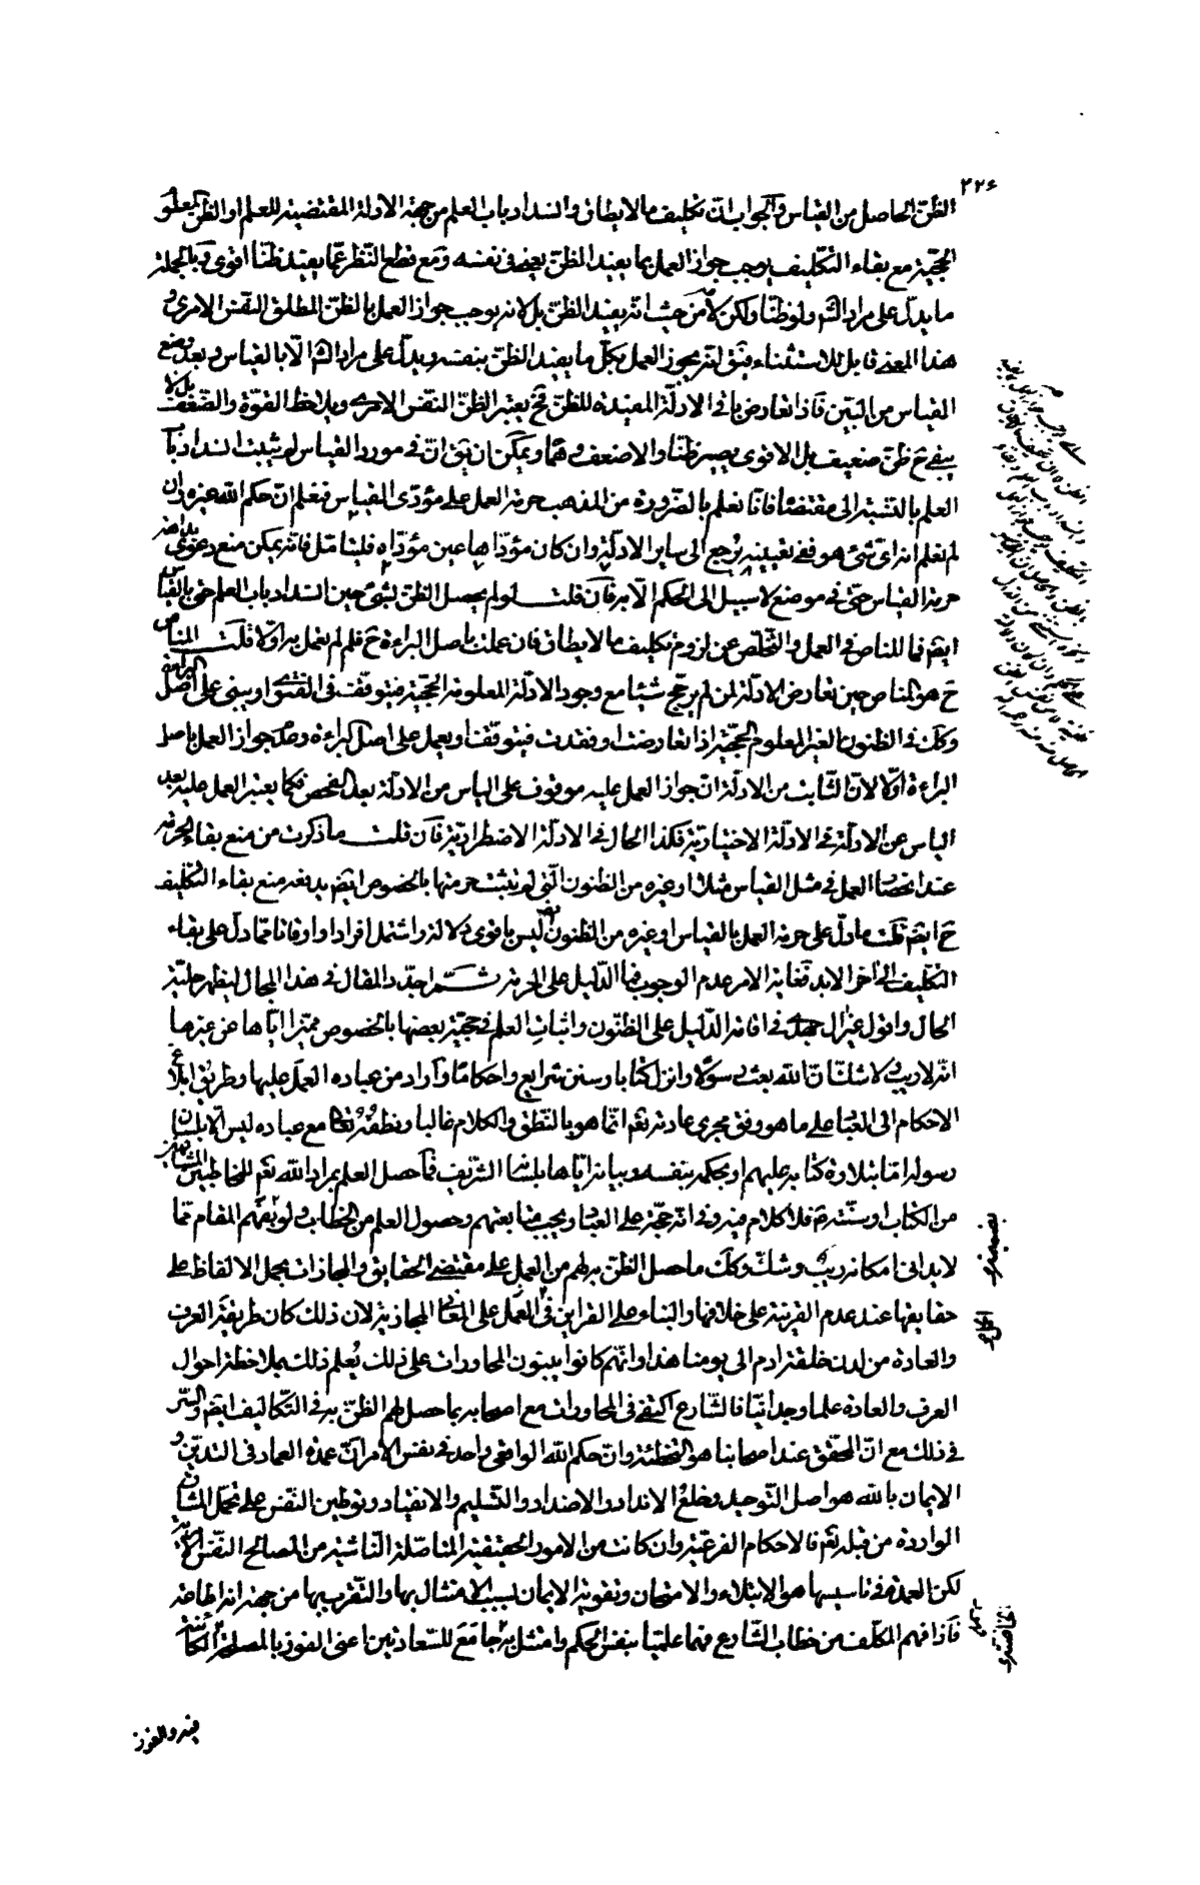 ٢٢٤
الظن الحاصل من القياس والجواب ان تكليف ما لا يطاق وانسداد باب العلم من جهة الادلة المقتضية للعلم او الظن المعلوم
الحجية مع بقاء التكليف يوجب جواز العمل بما يفيد الظن يعنى فى نفسه ومع قطع النظر عما يفيد ظنا اقوى وبالجملة
ما يدل على مراد الشارع ولو ظنا ولكن لا من حيث انه يفيد الظن بل لانه يوجب جواز العمل بالظن المطلق النفس الامرى و
هذا المعنى قابل للاستثناء فيق انه يجوز العمل بكل ما يفيد الظن بنفسه ويدل على مراد الشارع الا بالقياس وبعد وضع
القياس من البين فاذا تعارض باقى الادلة المفيدة للظن فح يعتبر الظن النفس الامرى ويلاحظ القوة والضعف بل لا
يبقى ح ظن ضعيف بل الاقوى يصير ظنا والاضعف وهما ويمكن ان يق ان فى مورد القياس لم يثبت انسداد باب
العلم بالنسبة الى مقتضاه فانا نعلم بالضرورة من المذهب حرمة العمل على مؤدى القياس فنعلم ان حكم الله غيره وان
لم نعلم انه اى شئ هو ففى تعيينه يرجع الى ساير الادلة وان كان مؤداها عين مؤداه فليتامل فانه يمكن منع دعوى بداهة
حرمة القياس حتى فى موضع لا سبيل الى الحكم الا به فان قلت لو لم يحصل الظن بشئ حين انسداد باب العلم حتى بالقياس
ايضا فما المناص فى العمل والتخلص عن لزوم تكليف ما لا يطاق فان عملت باصل البراءة ح فلم لم نعمل به اولا قلت المناص
ح هو المناص حين تعارض الادلة لمن لم يرجح شيئا مع وجود الادلة المعلومة الحجية فيتوقف فى الفتوى او يبنى على اصل البراءة
وكك فى الظنون الغير المعلوم الحجية اذا تعارضت او فقدت فيتوقف او يعمل على اصل البراءة و جواز العمل باصل
البراءة اولا لان الثابت من الادلة ان جواز العمل عليه موقوف على الياس من الادلة بعد الفحص فكما يعتبر العمل عليه بعد
الياس عن الادلة فى الادلة الاختيارية فكذا الحال فى الادلة الاضطرارية فان قلت ما ذكرت من منع بقاء الحرمة
عند انحصار العمل فى مثل القياس مثلا او غيره من الظنون التى لم يثبت حرمتها بالخصوص ايضا يدفعه منع بقاء التكليف
ح ايضا قلت ما دل على حرمة العمل بالقياس او غيره من الظنون ليس باقوى دلالة واشتمل افرادا واوقاتا مما دل على بقاء
التكليف الى اخر الابد فغاية الامر عدم الوجوب فما الدليل على الحرمة ثم اجدد المقال فى هذا المجال ليظهر جلية
الحال واقول فى اقامة الدليل على الظنون واثبات العلم فى حجية بعضها بالخصوص مميزا اياها عن غيرها
انه لا ريب ولا شك ان الله بعث رسولا وانزل كتابا وسنن شرايع واحكاما واراد من عباده العمل عليها وطريق ابلاغ
الاحكام الى العباد على ما هو وفق مجرى عادته تعالى انما هو بالنطق والكلام غالبا ونطقه تعالى مع عباده ليس الا بلسان
رسوله اما بتلاوة كتابه عليهم او بحكمه بنفسه وبيانه اياها بلسانه الشريف فما حصل العلم بمراد الله تعالى للمخاطبين المشافهين
من الكتاب او سنته فلا كلام فيه وفى انه حجة على العباد ويجب متابعتهم وحصول العلم من الخطاب ولو بمعونة المقام مما
لا يدانى امكانه ريب وشك وكك ما حصل الظن به لهم من العمل على مقتضى الحقايق والمجازات بحمل الالفاظ على
حقايقها عند عدم القرينة على خلافها والبناء على القراين فى الحمل على المعانى المجازية لان ذلك كان طريقة العرف
والعادة من لدن خلقة ادم الى يومنا هذا وانهم كانوا يبنون المحاورات على ذلك يعلم ذلك بملاحظة احوال
العرف والعادة علما وجدانيا فالشارع اكتفى فى المحاورات مع اصحابه بما حصل لهم الظن به فى التكاليف ايضا والسر
فى ذلك مع ان المحقق عند اصحابنا هو التخطئة وان حكم الله الواقعى واحد فى نفس الامر ان عمدة العماد فى التدين و
الايمان بالله هو اصل التوحيد وخلع الانداد والاضداد والتسليم والانقياد وتوطين النفس على تحمل المشاق
الواردة من قبله تعالى فالاحكام الفرعية وان كانت من الامور الحقيقية المتاصلة الناشية من المصالح النفس الامرية
لكن العمدة فى تاسيسها هو الابتلاء والامتحان وتقوية الايمان بسبب الامتثال بها والتقرب بها من جهة انها اطاعة
فاذا فهم المكلف من خطاب الشارع فهما علميا بنفس الحكم وامتثل به جامع للسعادتين اعنى الفوز بالمصلحة الكائنة
فيه والفوز